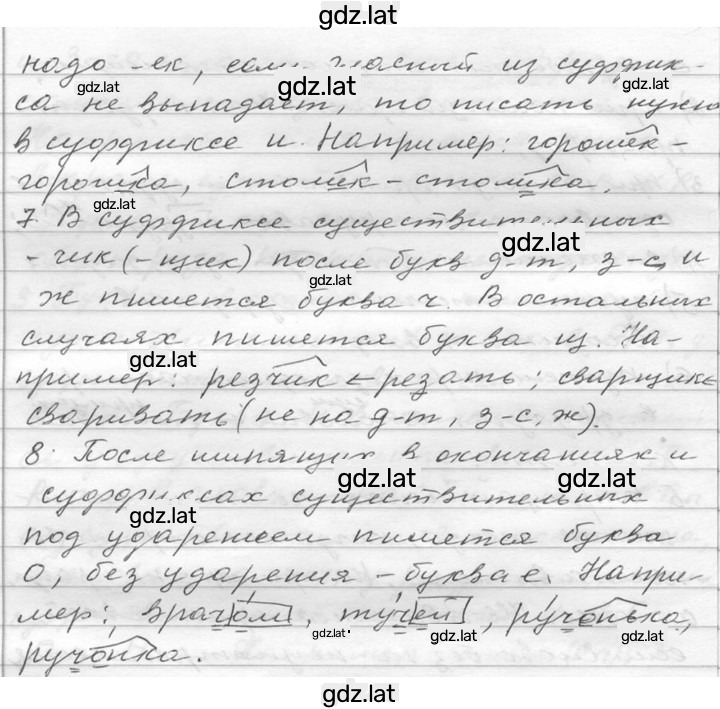 gdz.lat
надо -ек, если гласный из суффик-
gdz.lat gdz.lat
са не выпадает, то писать нужно
в суффиксе и. Например: горошек-
горошка, столик-столика.
gdz.lat
7. В суффиксе существительных
gdz.lat
-чик(-щик) после букв д-т, з-с, и
gdz.lat
ж пишется буква ч. В остальных
случаях пишется буква щ. На-
gdz.lat
пример: резчик ← резать; сварщик ←
сваривать (не на д-т, з-с, ж).
8. После шипящих в окончаниях и
gdz.lat gdz.lat
суффиксах существительных
gdz.lat
под ударением пишется буква
О, без ударения - буква е. Напри-
мер: врачом, тучей, ручонька,
gdz.lat gdz.lat gdz.lat
ручонка.
gdz.lat